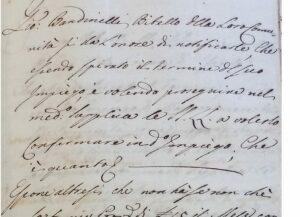 Gio: Bandinelli Bidello della Loro Comu-
nità si dà l'onore di notificarle che
essendo spirato il termine di suo
Impiego e volendo proseguire nel
med:o supplica le a volerlo
confermare in d:o Impiego, Che
è quanto
Espone altresì che non ha se non che